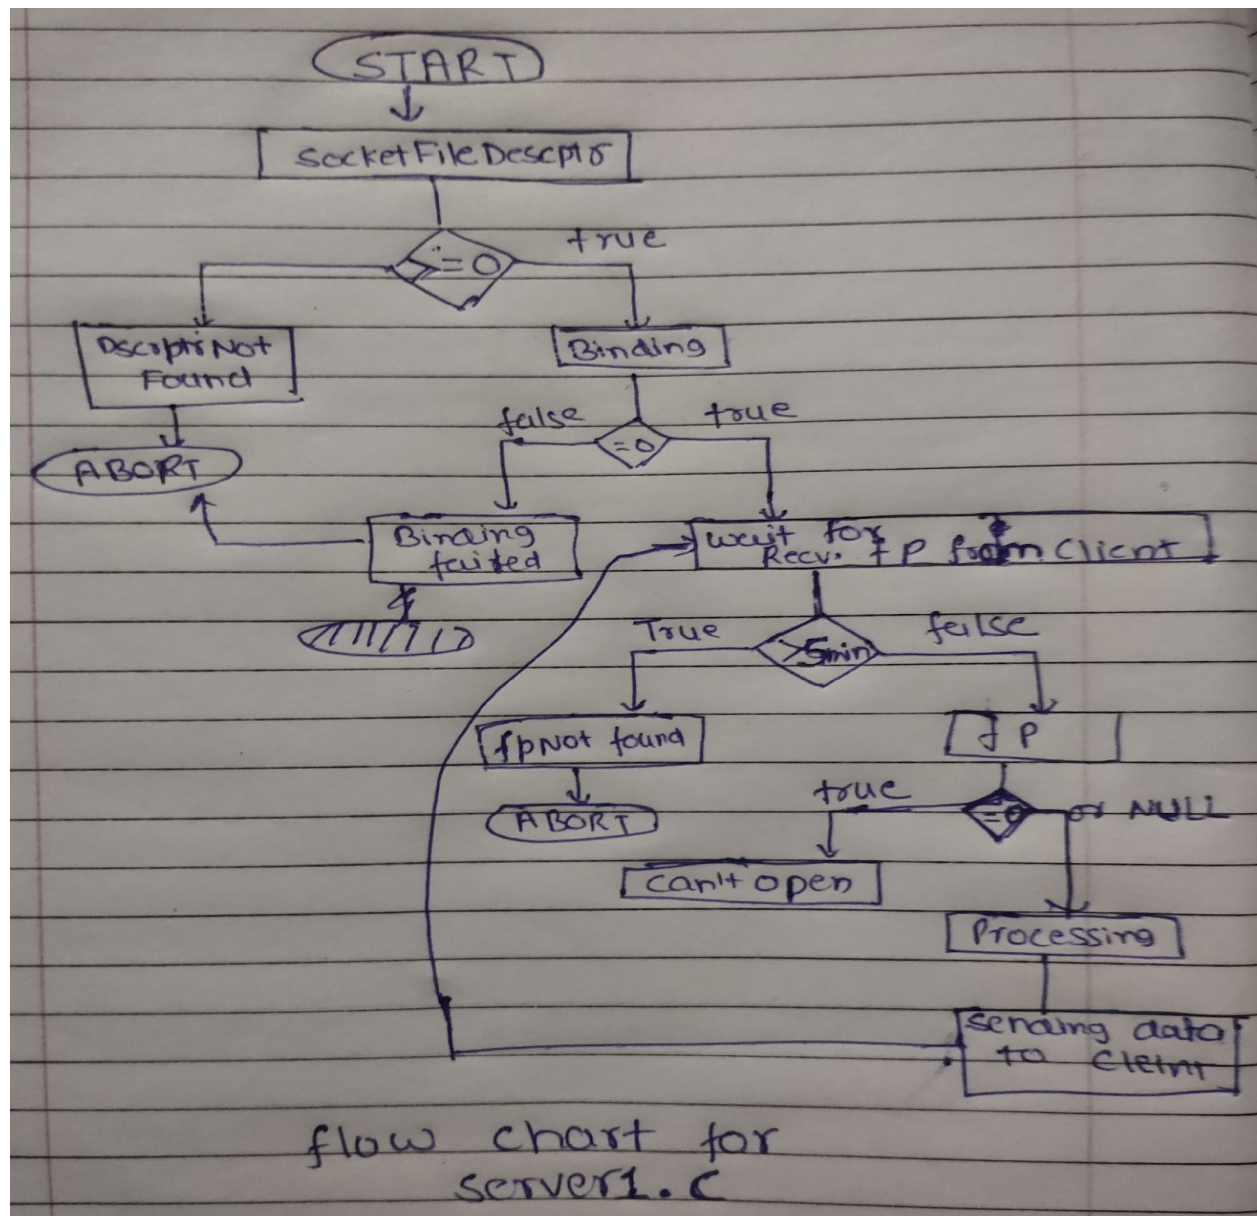 START
SocketFileDescptr
true
>=0
DscrptrNot
Found
Binding
false
true
=0
ABORT
Binding
failed
wait for
Recv. fP from Client
True
>5min
false
fpNot found
fP
true
=0
or NULL
ABORT
can't open
Processing
sending data
to
flow chart for
server1.c